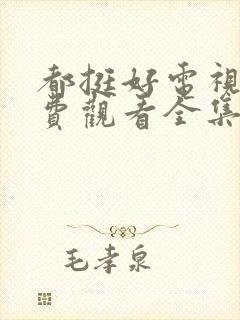 都挺好電視
費觀看全集
毛孝泉